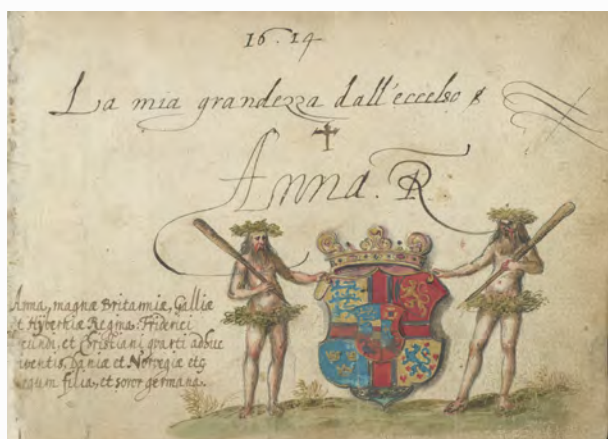 16.14
La mia grandezza dall'eccelso
Anna. R
Anna, magnæ Britanniæ, Galliæ
et Hyberniæ Regina: Friderici
cundi, et Christiani quarti adhuc
viventis, Daniæ et Norvegiæ etc
egum filia, et soror germana.